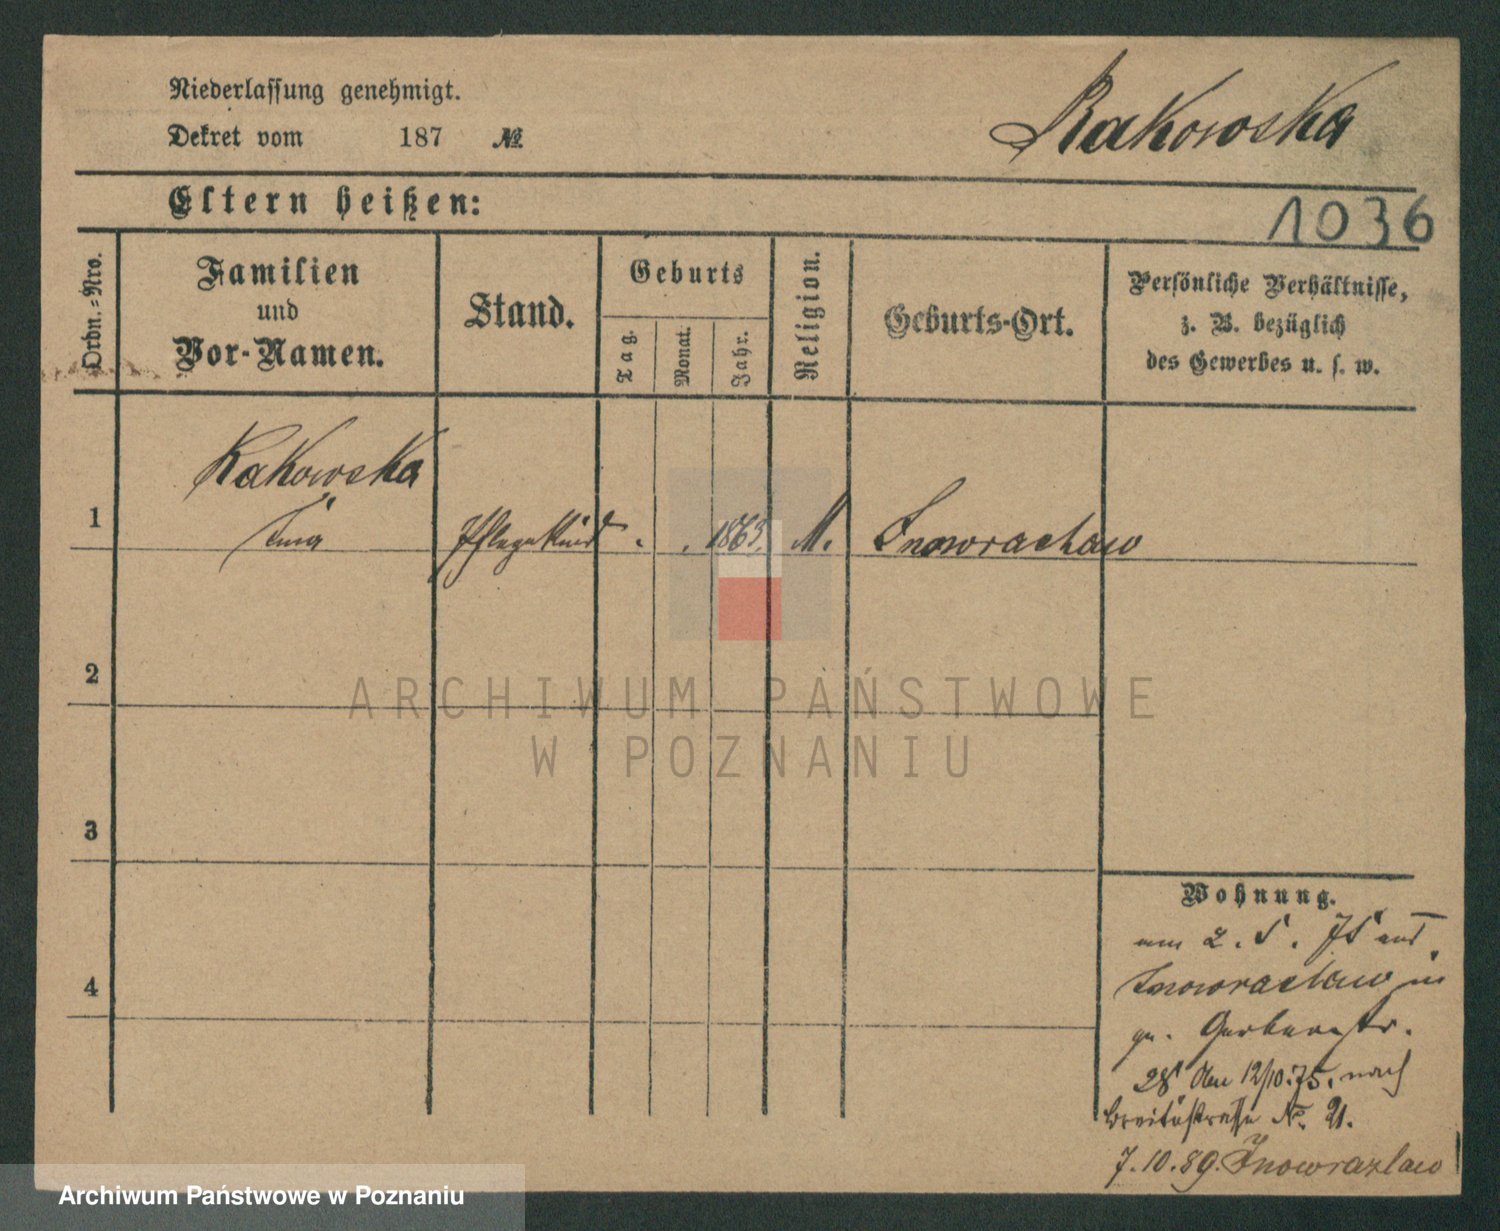 Niederlassung genehmigt.
Dekret vom 187 №
Rakowska
Eltern heißen:
1036
Ordn.-Nro.
Familien
und
Vor-Namen.
Stand.
Geburts
Tag.
Monat.
Jahr.
Religion.
Geburts-Ort.
Persönliche Verhältnisse,
z. B. bezüglich
des Gewerbes u. s. w.
Rakowska
1 Pflegekind . . 1863. M. Inowraclaw
2
3
4
Wohnung.
am 2. 5. 75 aus
Inowraclaw in
Gerberstr.
28 den 12/10.75. nach
Breitestrasse No. 21.
7.10.89. Inowrazlaw
ARCHIWUM PAŃSTWOWE
W POZNANIU
Archiwum Państwowe w Poznaniu